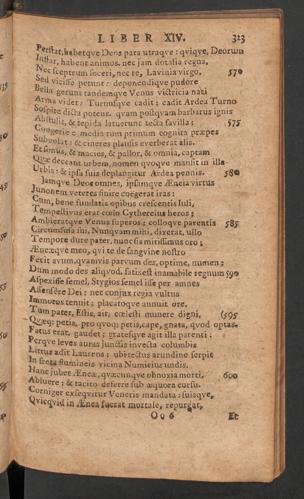 LIBER XIV. 323
Perstat, habetque Deos pars utraque: quique, Deorum
Instar, habent animos. nec jam dotalia regna,
Nec sceptrum soceri, nec te, Lavinia virgo, 570
Sed vicisse petunt: deponendique pudore
Bella gerunt tandemque Venus victricia nati
Arma videt: Turnusque cadit: cadit Ardea Turno
Sospite dicta potens. quam postquam barbarus ignis
Abstulit, & tepida latuerunt tecta favilla; 575
Congerie e media tum primum cognita præpes
Subvolat: & cineres plausis everberat alis.
Et sonus, & macies, & pallor, & omnia, captam
Quæ deceant urbem, nomen quoque mansit in illa
Urbis: & ipsa suis deplangitur Ardea pennis. 580
Jamque Deos omnes, ipsumque Æneïa virtus
Junonem veteres finire coëgerat iras:
Cum, bene fundatis opibus crescentis Iuli,
Tempestivus erat cœlo Cythereïus heros;
Ambieratque Venus superos; colloque parentis 585
Circumfusa sui, Nunquam mihi, dixerat, ullo
Tempore dure pater, nunc sis mitissimus oro;
Æneæque meo, qui te de sanguine nostro
Fecit avum, quamvis parvum des, optime, numen;
Dum modo des aliquod. satis est inamabile regnum 590
Aspexisse semel, Stygios semel isse per amnes
Assensere Dei: nec conjux regia vultus
Immotos tenuit; placatoque annuit ore.
Tum pater, Estis, ait, cœlesti munere digni, (595
Quæq; petis, pro quoq; petis, cape, gnata, quod optas.
Fatus erat. gaudet; gratesque agit illa parenti:
Perque leves auras junctis invecta columbis
Littus adit Laurens; ubi tectus arundine serpit
In freta flumineis vicina Numicius undis.
Hunc jubet Æneæ, quæcunque obnoxia morti, 600
Abluere; & tacito deferre sub æquora cursu.
Corniger exsequitur Veneris mandata: suisque,
Quicquid in Ænea fuerat mortale, repurgat,
Oo 6 Et